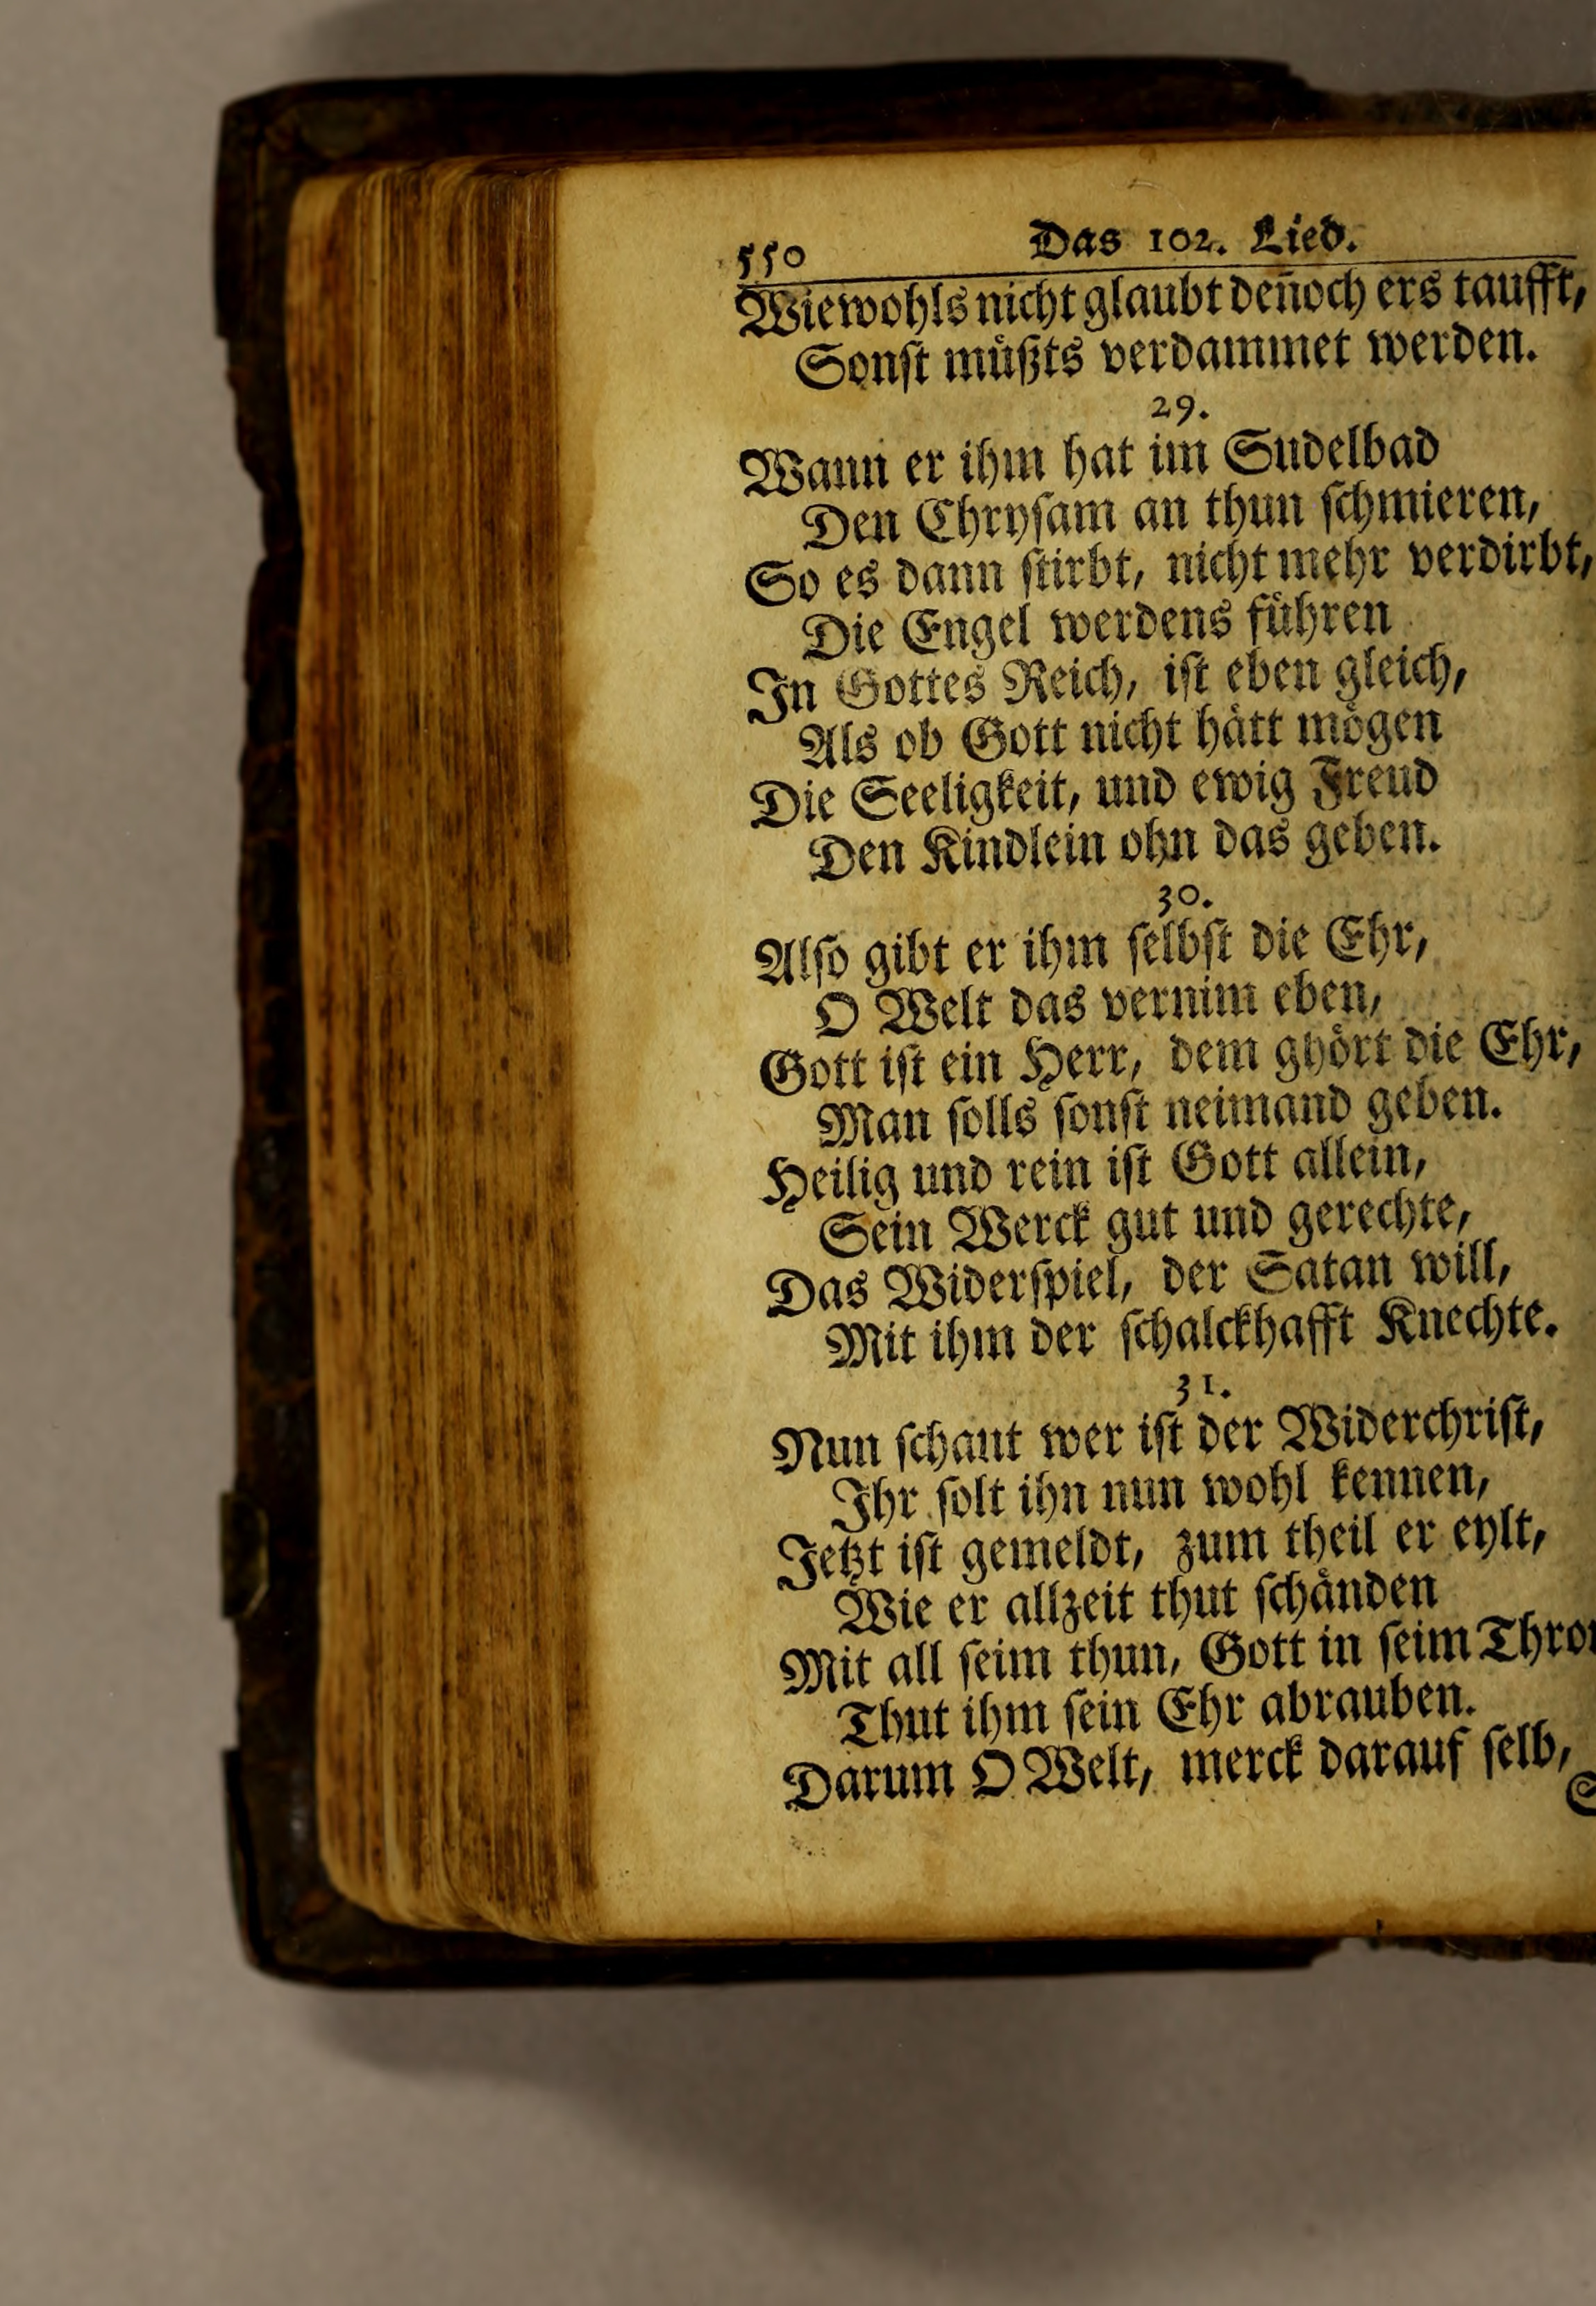 550 Das 102. Lied.
Wiewohls nicht glaubt deñoch ers taufft,
Sonſt müßts verdammet werden.
29.
Wann er ihm hat im Sudelbad
Den Chryſam an thun ſchmieren,
So es dann ſtirbt, nicht mehr verdirbt,
Die Engel werdens führen
In Gottes Reich, iſt eben gleich,
Als ob Gott nicht hätt mögen
Die Seeligkeit, und ewig Freud
Den Kindlein ohn das geben.
30.
Alſo gibt er ihm ſelbſt die Ehr,
O Welt das vernim eben,
Gott iſt ein Herr, dem ghört die Ehr,
Man ſolls ſonſt neimand geben.
Heilig und rein iſt Gott allein,
Sein Werck gut und gerechte,
Das Widerſpiel, der Satan will,
Mit ihm der ſchalckhafft Knechte.
31.
Nun ſchaut wer iſt der Widerchriſt,
Ihr ſolt ihn nun wohl kennen,
Jetzt iſt gemeldt, zum theil er eylt,
Wie er allzeit thut ſchänden
Mit all ſeim thun, Gott in ſeim
Thut ihm ſein Ehr abrauben.
Darum O Welt, merck darauf ſelb,